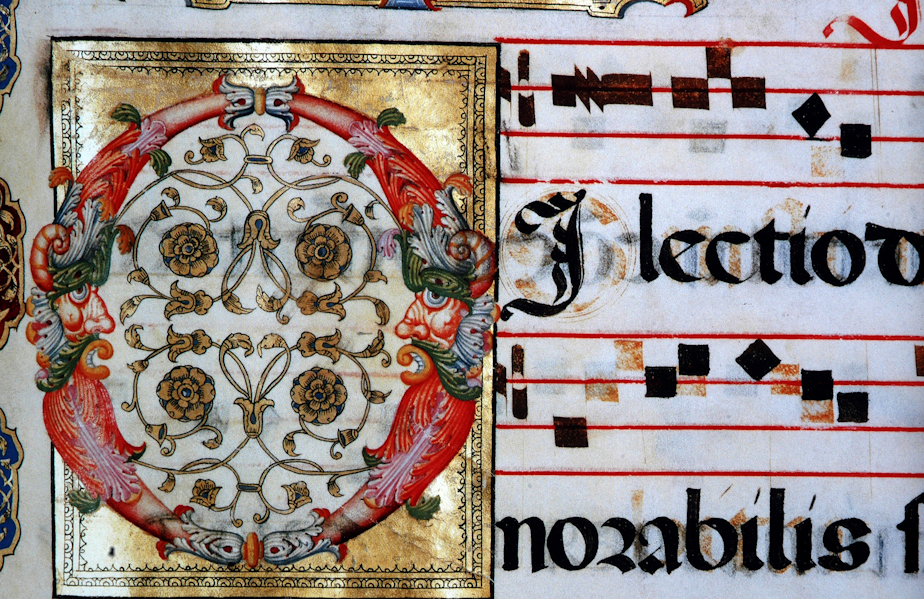 DIlectio d
norabilis ſ